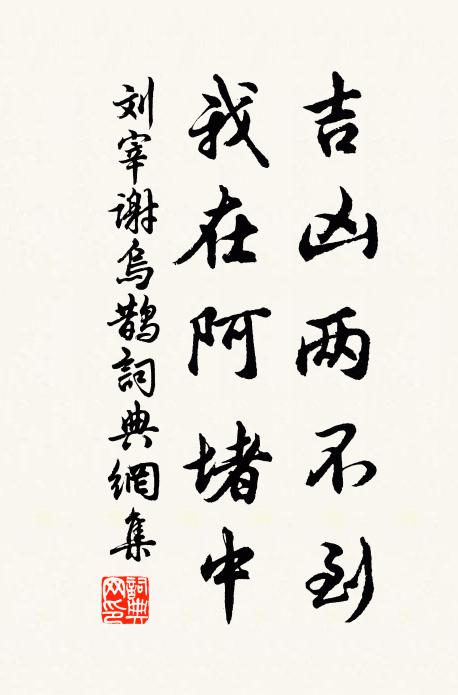 吉凶两不到
我在阿堵中
刘宰谢乌鹊詞典網集
詞典网印